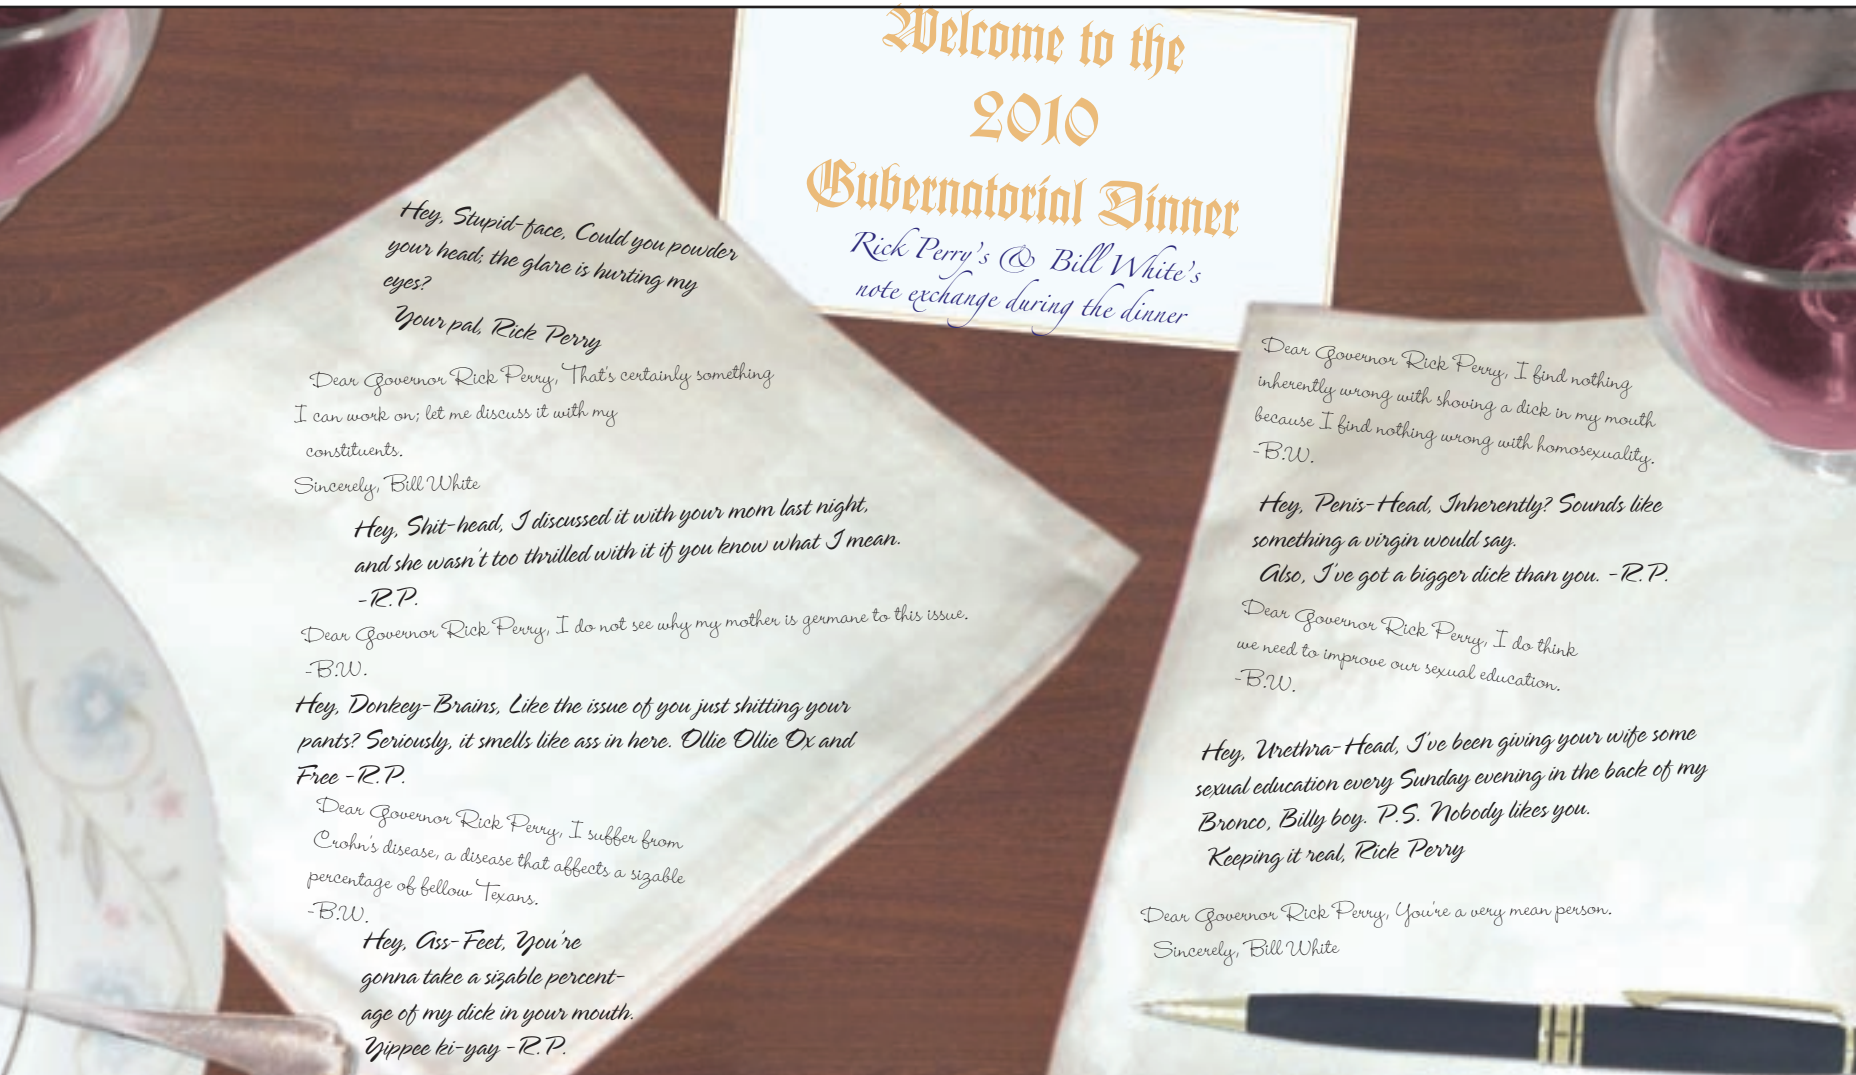 Welcome to the
2010
Gubernatorial Dinner
Rick Perry's & Bill White's
note exchange during the dinner
Hey, Stupid-face, Could you powder
your head; the glare is hurting my
eyes?
Your pal, Rick Perry
Dear Governor Rick Perry, That's certainly something
I can work on; let me discuss it with my
constituents.
Sincerely, Bill White
Hey, Shit-head, I discussed it with your mom last night,
and she wasn't too thrilled with it if you know what I mean.
-R.P.
Dear Governor Rick Perry, I do not see why my mother is germane to this issue.
-B.W.
Hey, Donkey-Brains, Like the issue of you just shitting your
pants? Seriously, it smells like ass in here. Ollie Ollie Ox and
Free -R.P.
Dear Governor Rick Perry, I suffer from
Crohn's disease, a disease that affects a sizable
percentage of fellow Texans.
-B.W.
Hey, Ass-Feet, You're
gonna take a sizable percent-
age of my dick in your mouth.
Yippee ki-yay -R.P.
Dear Governor Rick Perry, I find nothing
inherently wrong with shoving a dick in my mouth
because I find nothing wrong with homosexuality.
-B.W.
Hey, Penis-Head, Inherently? Sounds like
something a virgin would say.
Also, I've got a bigger dick than you. -R.P.
Dear Governor Rick Perry, I do think
we need to improve our sexual education.
-B.W.
Hey, Urethra-Head, I've been giving your wife some
sexual education every Sunday evening in the back of my
Bronco, Billy boy. P.S. Nobody likes you.
Keeping it real, Rick Perry
Dear Governor Rick Perry, You're a very mean person.
Sincerely, Bill White